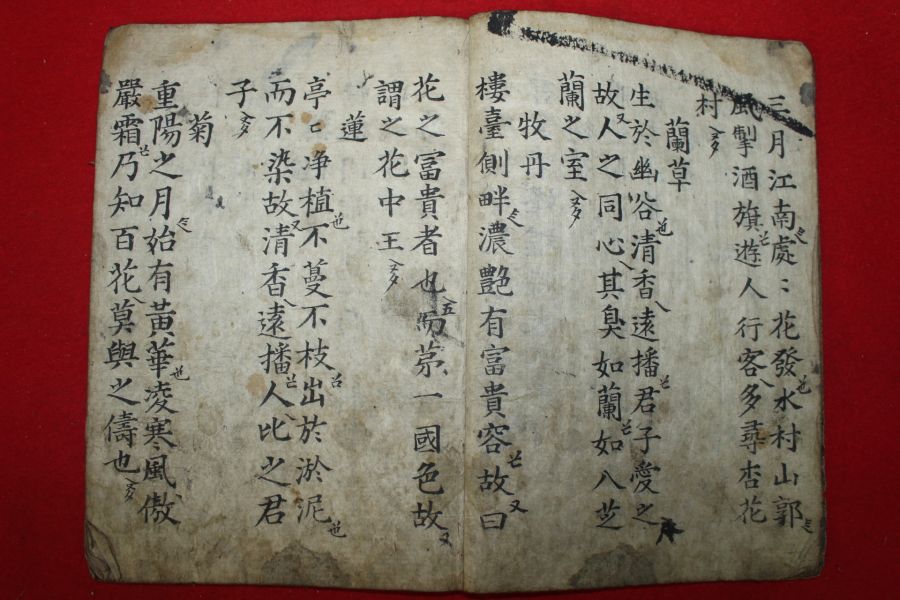 三月江南處〻花發水村山郭
風掣酒旗遊人行客多尋杏花
村
蘭草
生於幽谷清香遠播君子愛之
故人之同心其臭如蘭如入芝
蘭之室
牧丹
樓臺側畔濃艶有富貴容故曰
花之富貴者也而苐一國色故
謂之花中王
蓮
亭〻净植不蔓不枝出於淤泥
而不染故清香遠播人比之君
子
菊
重陽之月始有黃華凌寒風傲
嚴霜乃知百花莫與之儔也